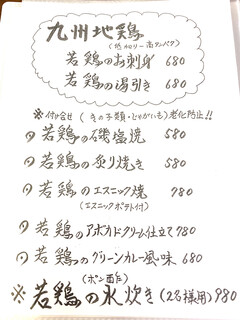 九州地鶏
(低カロリー高タンパク)
若鶏のお刺身 680
若鶏の湯引き 680
※付け合せ (きの子類・じゃがいも)老化防止!!
若鶏の磯塩焼 580
若鶏の炙り焼き 580
若鶏のエスニック焼 780
(エスニックポテト付)
若鶏のアボカドクリーム仕立て780
若鶏のグリーンカレー風味 680
(ポン酢)
※若鶏の水炊き(2名様用)980